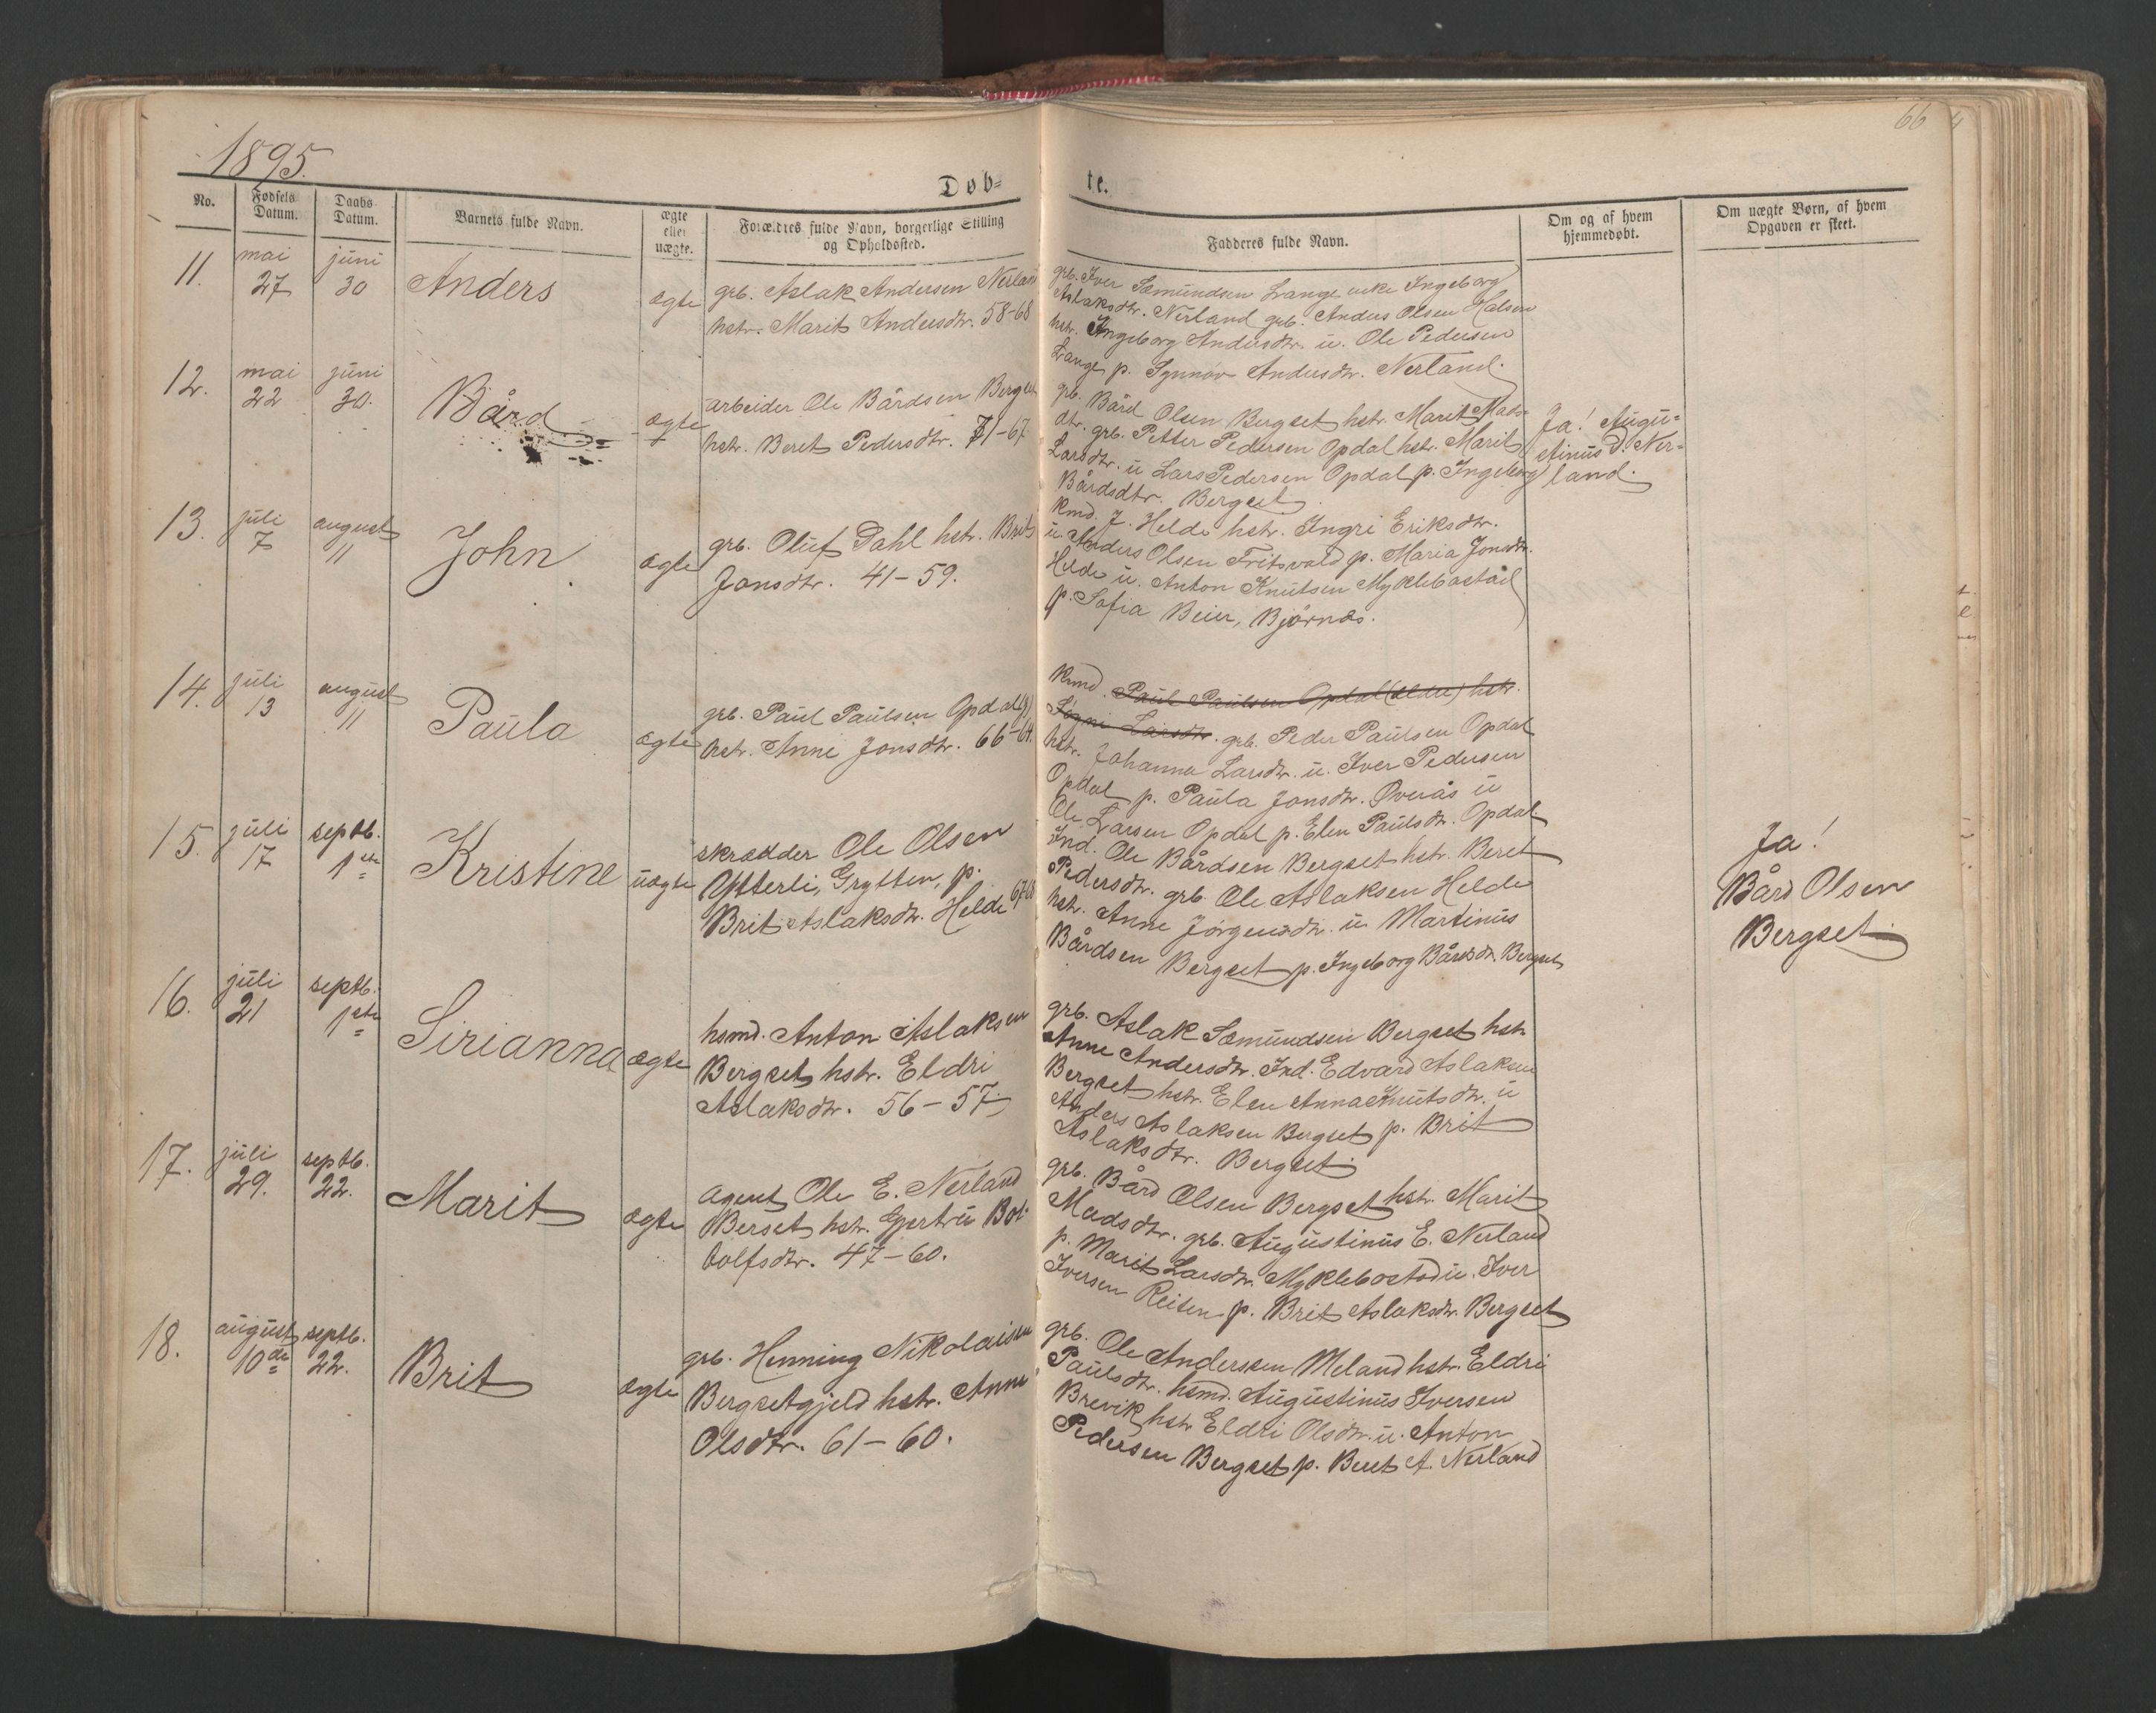 1895.
66
Døb=
te.
No.
Fødsels Datum.
Daabs Datum.
Barnets fulde Navn.
ægte eller uægte.
Forældres fulde Navn, borgerlige Stilling og Opholdssted.
Fadderes fulde Navn.
Om og af hvem hjemmedøbt.
Om uægte Børn, af hvem Opgaven er skeet.
11.
mai 27
juni 30
Anders
ægte
grb. Aslak Andersen Nerland
hstr. Marit Andersdtr. 58-68
grb. Iver Sæmundsen Lange enke Ingeborg
Aslaksdtr. Nerland grb. Anders Olsen Halsen
hstr. Ingeborg Andersdtr. u. Ole Pedersen
Lange p. Synnøv Andersdtr. Nerland.
12.
mai 22
juni 30.
Bård
ægte
arbeider Ole Bårdsen Bergset
hstr. Beret Pedersdtr. 71-67
grb. Bård Olsen Bergset hstr. Marit Mads=
dtr. grb. Petter Pedersen Opdal hstr. Marit
Larsdtr. u Lars Pedersen Opdal p. Ingeborg
Bårdsdtr. Bergset
Ja! Augu=
stinus E. Ner=
land.
13.
juli 7
august 11
John
ægte
grb. Oluf Dahl hstr. Brit
Jonsdtr. 41-59.
kmd. J. Helde hstr. Ingri Eriksdtr.
u Anders Olsen Fritsvold p. Maria Jonsdtr.
Helde u. Anton Knutsen Myklebostad
p. Sofia Beier, Bjørnås.
14.
juli 13
august 11
Paula
ægte
grb. Paul Paulsen Opdal (y)
hstr. Anne Jonsdtr. 66-64.
kmd. Paul Paulsen Opdal (eldre) hstr.
Signi Larsdtr. grb. Peder Paulsen Opdal
hstr. Johanna Larsdtr. u. Iver Pedersen
Opdal p. Paula Jonsdtr. Øverås u
Ole Larsen Opdal p. Elen Paulsdtr. Opdal
15.
juli 17
septb. 1ste
Kristine
uægte
skrædder Ole Olsen
Ytterli, Grytten, p.
Brit Aslaksdtr. Helde 67-68
Ind. Ole Bårdsen Bergset hstr. Beret
Pedersdtr. grb. Ole Aslaksen Helde
hstr. Anne Jørgensdtr. u Martinus
Bårdsen Bergset p. Ingeborg Bårdsdtr. Bergset
Ja!
Bård Olsen
Bergset.
16.
juli 21
septb. 1ste
Sirianna
ægte
hsmd. Anton Aslaksen
Bergset hstr. Eldri
Aslaksdtr. 56-57.
grb. Aslak Sæmundsen Bergset hstr
Anne Andersdtr. Ind. Edvard Aslaksen
Bergset hstr. Elen Anna Knutsdtr. u
Anders Aslaksen Bergset p. Brit
Aslaksdtr. Bergset.
17.
juli 29.
septb. 22.
Marit
ægte
agent Ole E. Nerland
Berset hstr. Gjertru Bot-
tolfsdtr. 47-60.
grb. Bård Olsen Bergset hstr. Marit
Madsdtr. grb. Augustinus E. Nerland
p. Marit Larsdtr. Myklebostad u. Iver
Iversen Reiten p. Brit Aslaksdtr. Bergset
18.
august 10de
septb. 22.
Brit
ægte
grb. Henning Nikolaisen
Bergsetgjeld hstr. Anne
Olsdtr. 61-60.
grb. Ole Anderssen Meland hstr. Eldri
Paulsdtr. hsmd. Augustinus Iversen
Brevik hstr Eldri Olsdtr. u. Anton
Pedersen Bergset p. Beret A. Nerland